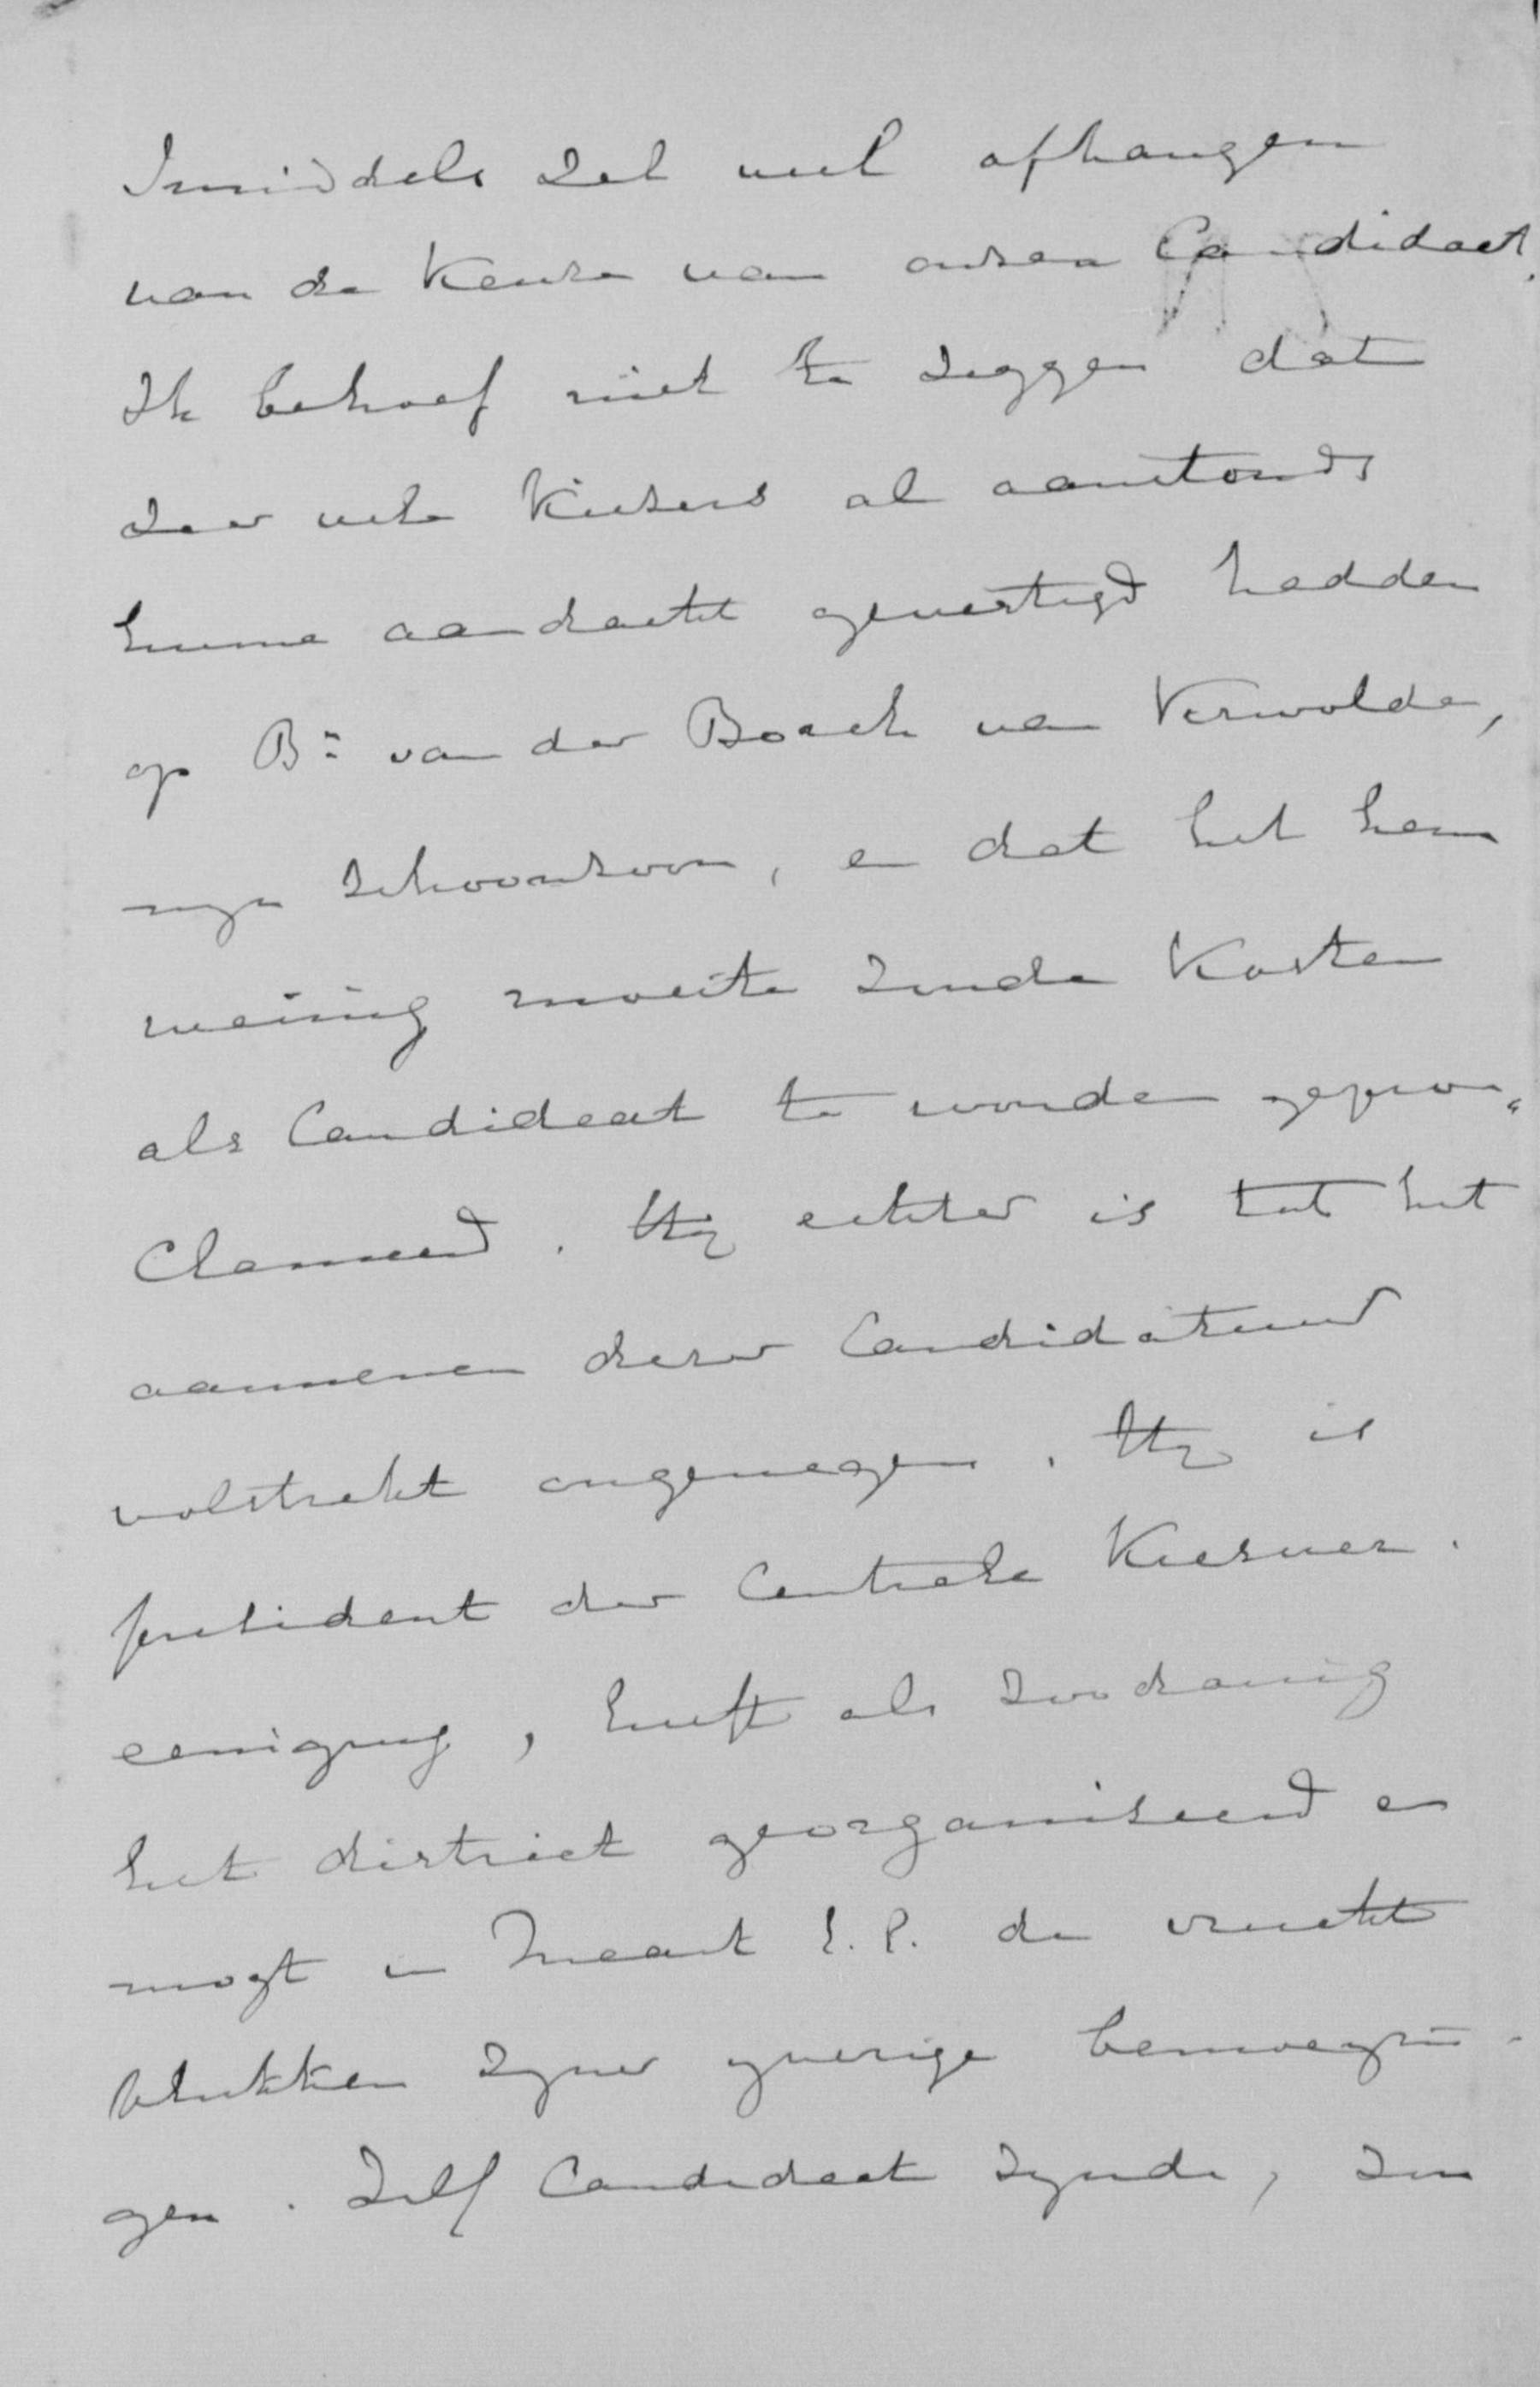 Inmiddels zal veel afhangen
van de keuze van onzen Candidaat.
Ik behoef niet te zeggen dat
zeer vele kiezers al aanstonds
hunne aandacht gevestigd hadden
op Bn van der Borch van Verwolde,
mijn schoonzoon, en dat het hem
weinig moeite zoude kosten
als Candidaat te worden gepro„
clameerd. Hij echter is tot het
aannemen dezer Candidatuur
volstrekt ongenegen. Hij is
president der Centrale Kiesver.
eeniging, heeft als zoodanig
het district georganiseerd en
mogt in Maart l.l. de vrucht
plukken zijner ijverige bemoeyin-
gen. Zelf Candidaat zijnde, zou